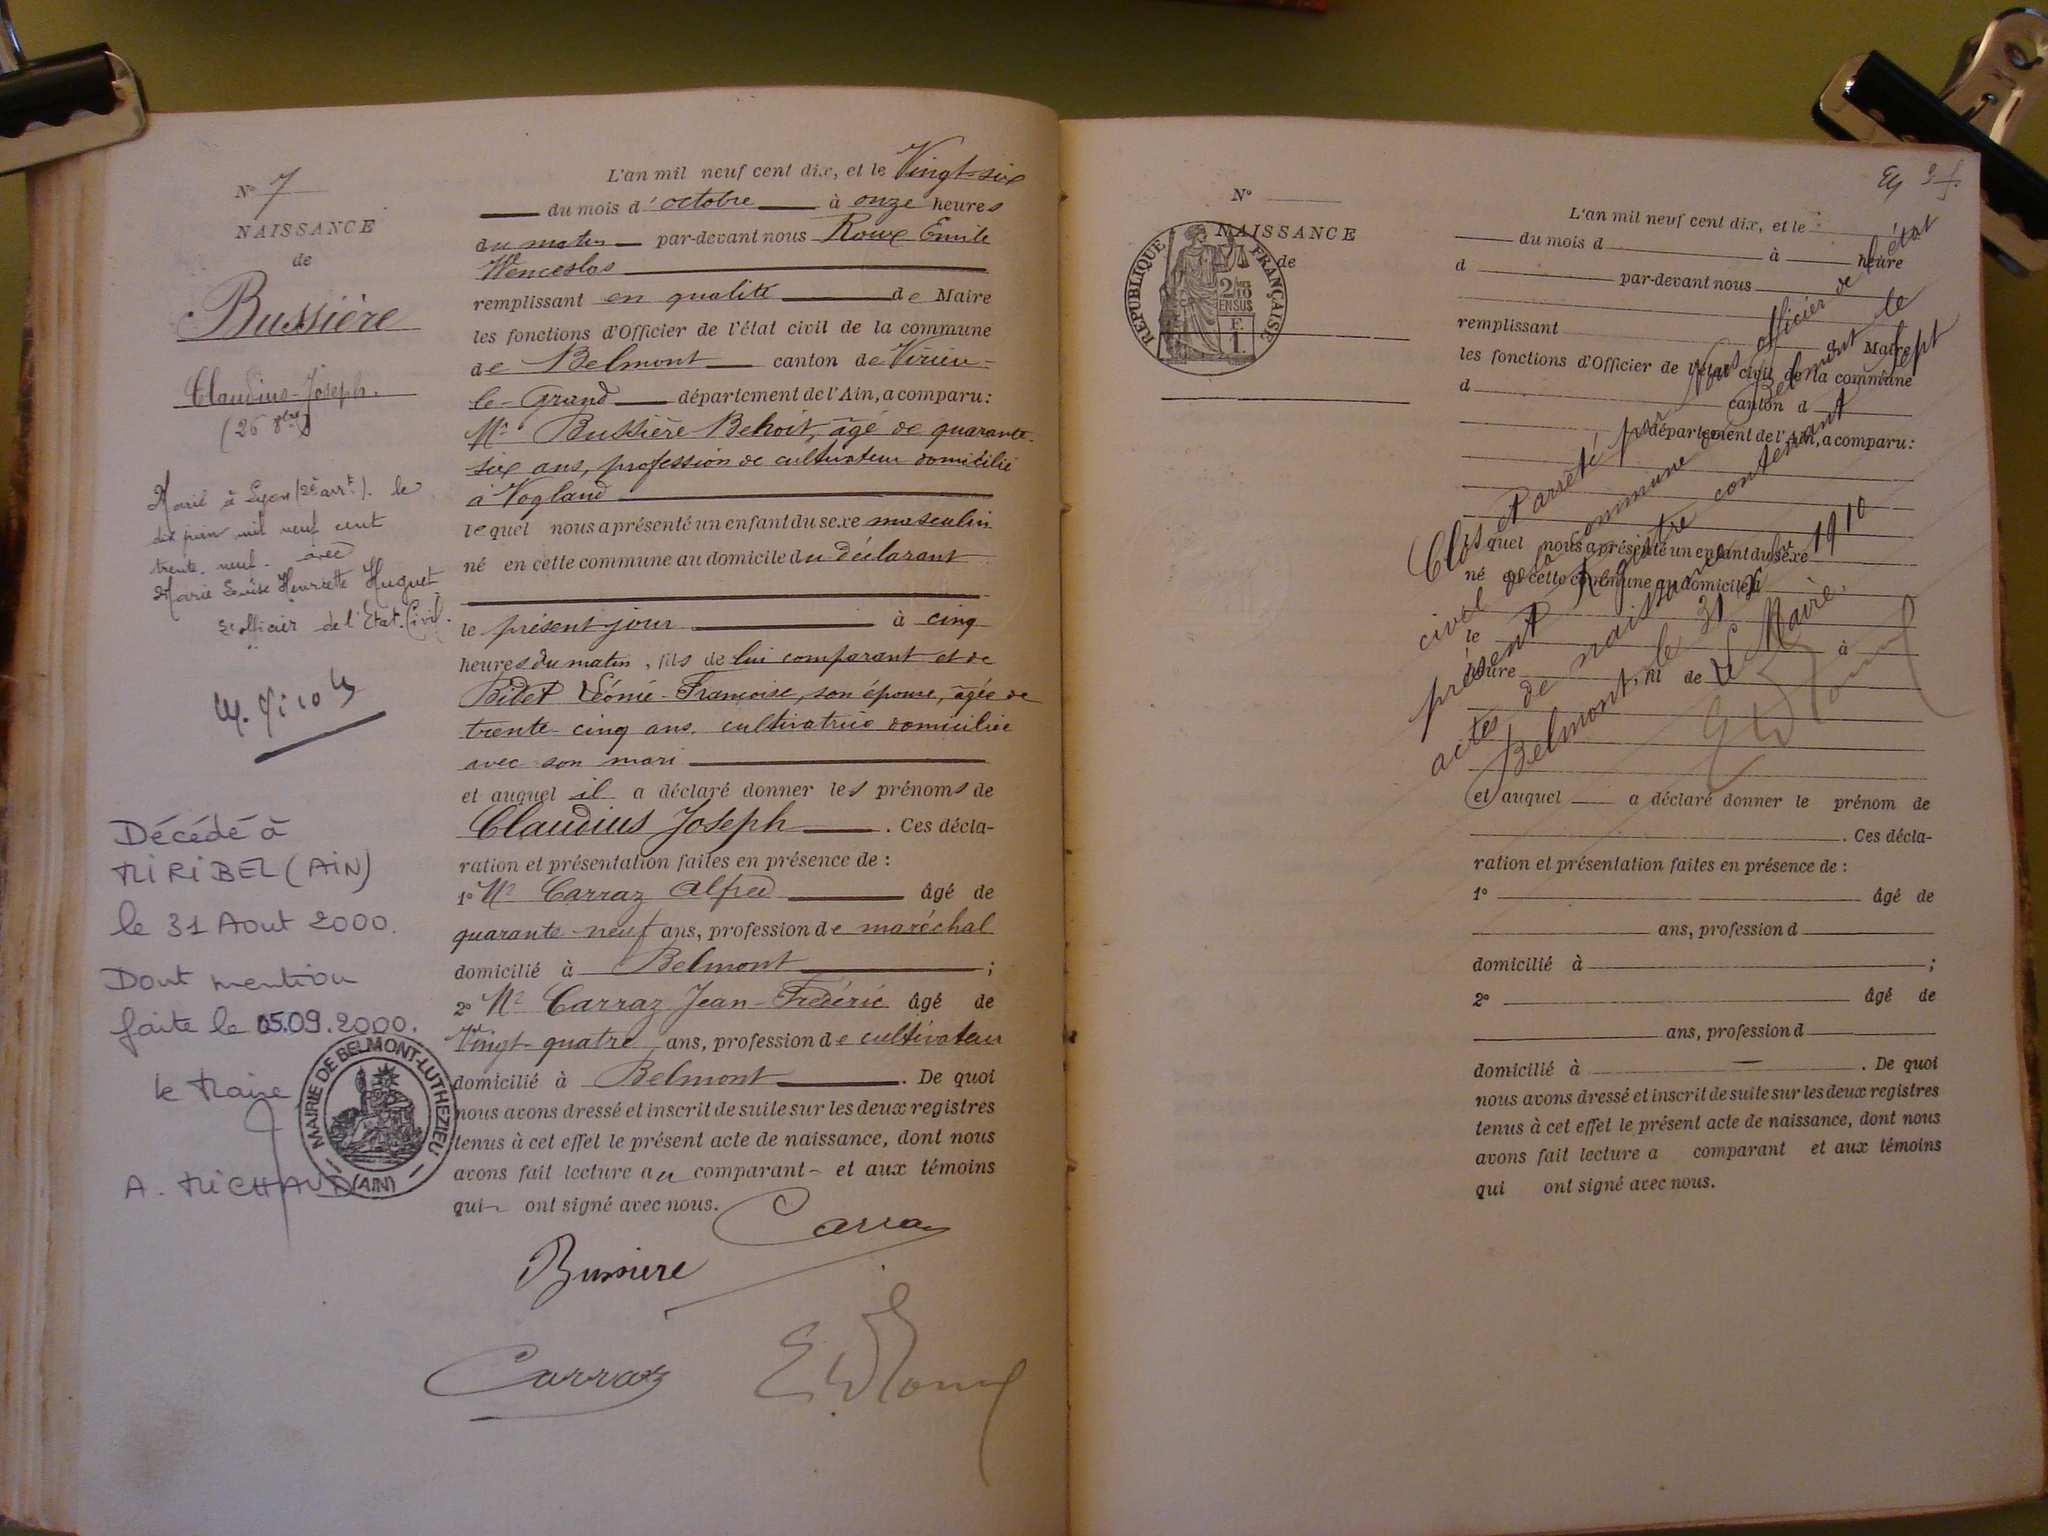 N° 7
NAISSANCE
de
Bussière
Claudius-Joseph.
(26 8bre)
Marié à Lyon (2e arrt). le
dix juin mil neuf cent
trente-neuf. avec
Marie Louise Henriette Huguet
officier de l'Etat-Civil.
Décédé à
MIRIBEL (AIN)
le 31 Aout 2000.
Dont mention
faite le 05.09.2000.
le Maire,
A. MICHAUD
MAIRIE DE BELMONT-LUTHEZIEU
(AIN)
L'an mil neuf cent dix, et le Vingt-six
du mois d'octobre à onze heures
du matin par-devant nous Roux Emile
Wenceslas
remplissant en qualité de Maire
les fonctions d'Officier de l'état civil de la commune
de Belmont canton de Virieu-
le-Grand département de l'Ain, a comparu:
Mr Bussière Benoit, âgé de quarante-
six ans, profession de cultivateur domicilié
à Vogland
lequel nous a présenté un enfant du sexe masculin
né en cette commune au domicile du déclarant
le présent jour à cinq
heures du matin, fils de lui comparant et de
Bidet Léonie-Françoise, son épouse, âgée de
trente-cinq ans. cultivatrice domiciliée
avec son mari
et auquel il a déclaré donner les prénoms de
Claudius Joseph. Ces décla-
ration et présentation faites en présence de :
1° Mr Carraz Alfred âgé de
quarante-neuf ans, profession de maréchal
domicilié à Belmont ;
2° Mr Carraz Jean-Frédéric âgé de
Vingt-quatre ans, profession de cultivateur
domicilié à Belmont. De quoi
nous avons dressé et inscrit de suite sur les deux registres
tenus à cet effet le présent acte de naissance, dont nous
avons fait lecture au comparant et aux témoins
qui ont signé avec nous.
Carraz
Bussiere
Carraz
N°
NAISSANCE
de
REPUBLIQUE FRANÇAISE
2/10
EN SUS
L'an mil neuf cent dix, et le
du mois d à heure
d par-devant nous
remplissant Maire
les fonctions d'Officier de l'état civil de la commune
d canton d
département de l'Ain, a comparu:
lequel nous a présenté un enfant du sexe
né en cette commune au domicile d
le à
heure , fil de
Clos et arrêté par Nous officier de l'état
civil de la commune de Belmont le
présent Registre contenant sept
actes de naissance
Belmont, le 31 Xbre 1910
Le Maire.
et auquel a déclaré donner le prénom de
. Ces décla-
ration et présentation faites en présence de :
1° âgé de
ans, profession d
domicilié à ;
2° âgé de
ans, profession d
domicilié à . De quoi
nous avons dressé et inscrit de suite sur les deux registres
tenus à cet effet le présent acte de naissance, dont nous
avons fait lecture a comparant et aux témoins
qui ont signé avec nous.